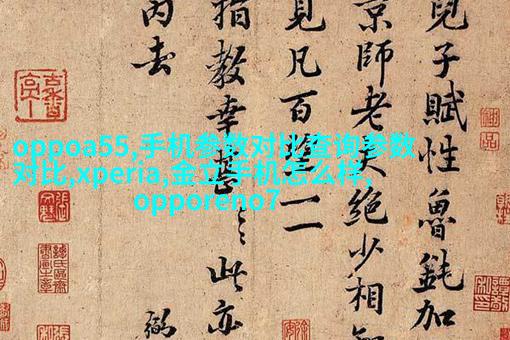 兒子賦性魯鈍加
京師老夫絕少相知
見凡百望一二
指教幸甚〻此亦
丙去
oppoa55,手机参数对比查询参数
对比,xperia,金立手机怎么样,
opporeno7